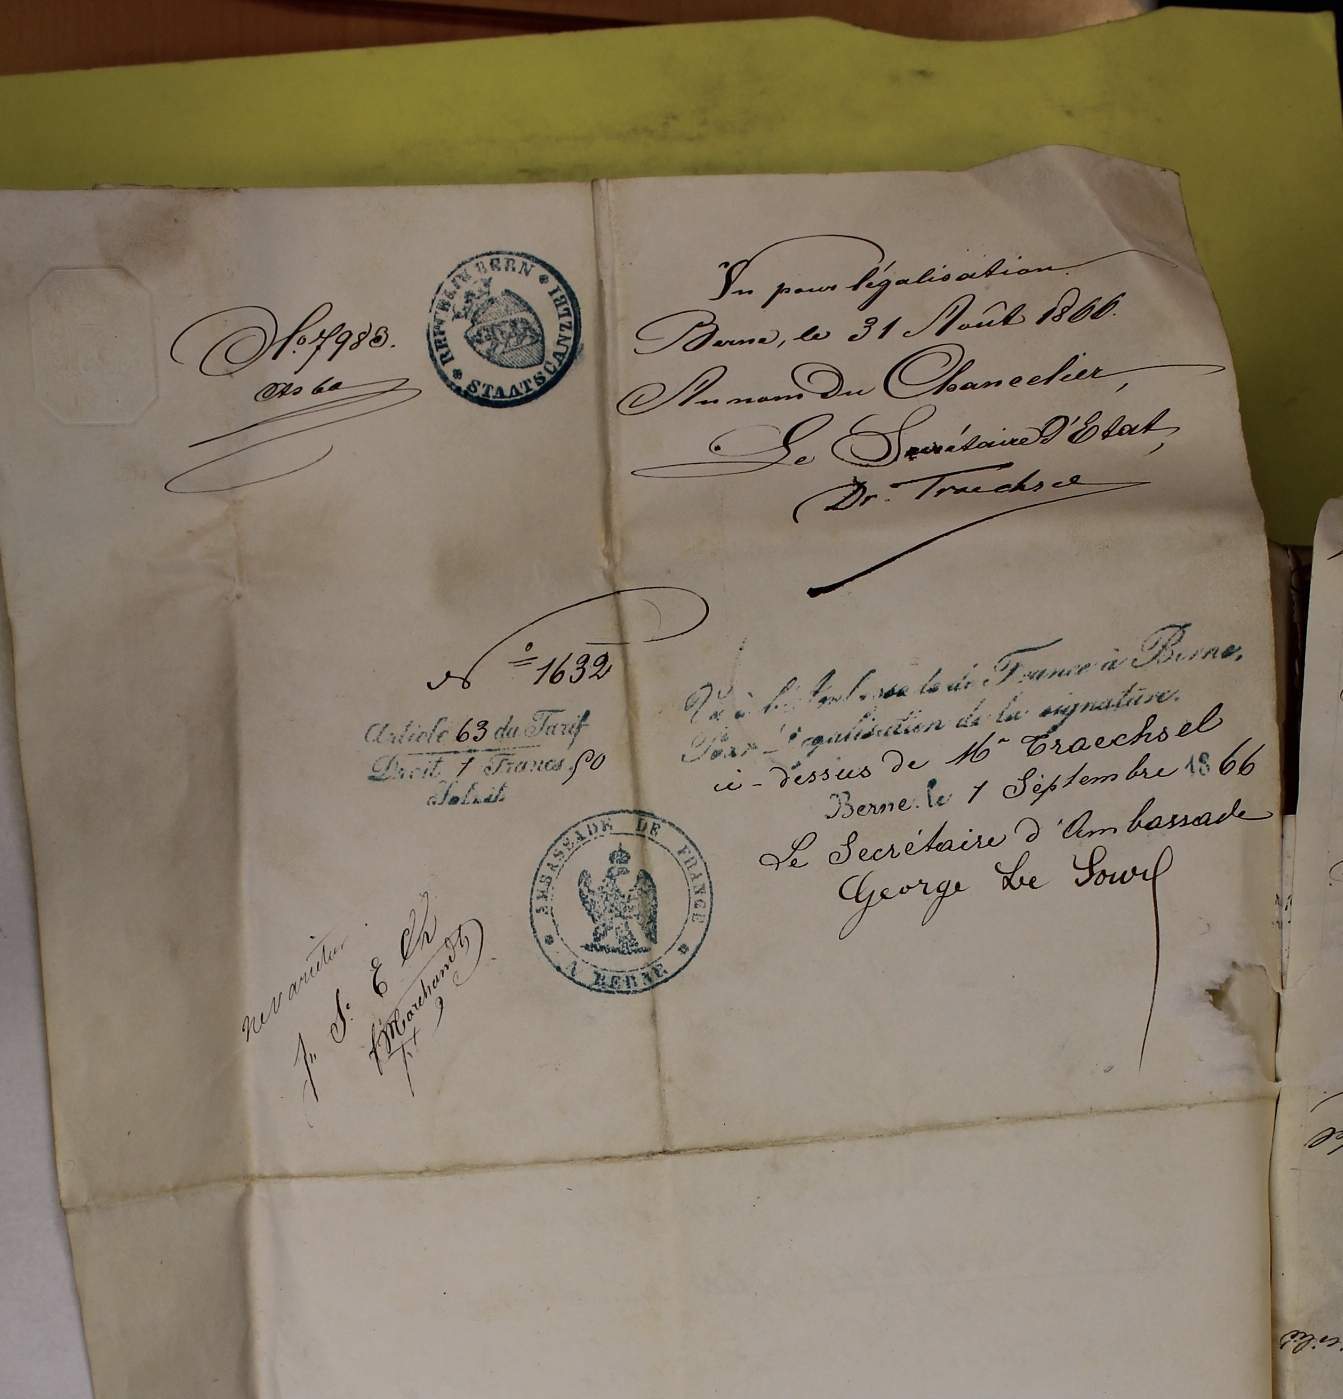 No. 7983.
REPUBLIK BERN
STAATSCANZLEI
Vu pour légalisation.
Berne, le 31 Août 1866.
Au nom du Chancelier,
Le Secrétaire d'Etat,
Dr. Traechsel
No 1632
Article 63 du Tarif
Droit 7 Francs 50
Vu à l'Ambassade de France à Berne,
Pour légalisation de la signature
ci-dessus de Mr Traechsel
Berne, le 1 Septembre 1866
Le Secrétaire d'Ambassade
George Le Sourd
AMBASSADE DE FRANCE
A BERNE
Ne varietur
Jn St E Ch
Marchandt